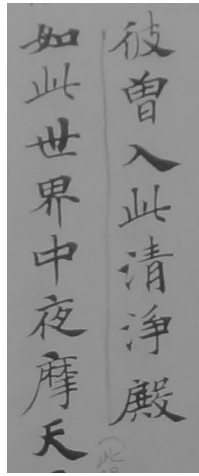 彼曽入此清淨殿
如此世界中夜摩天